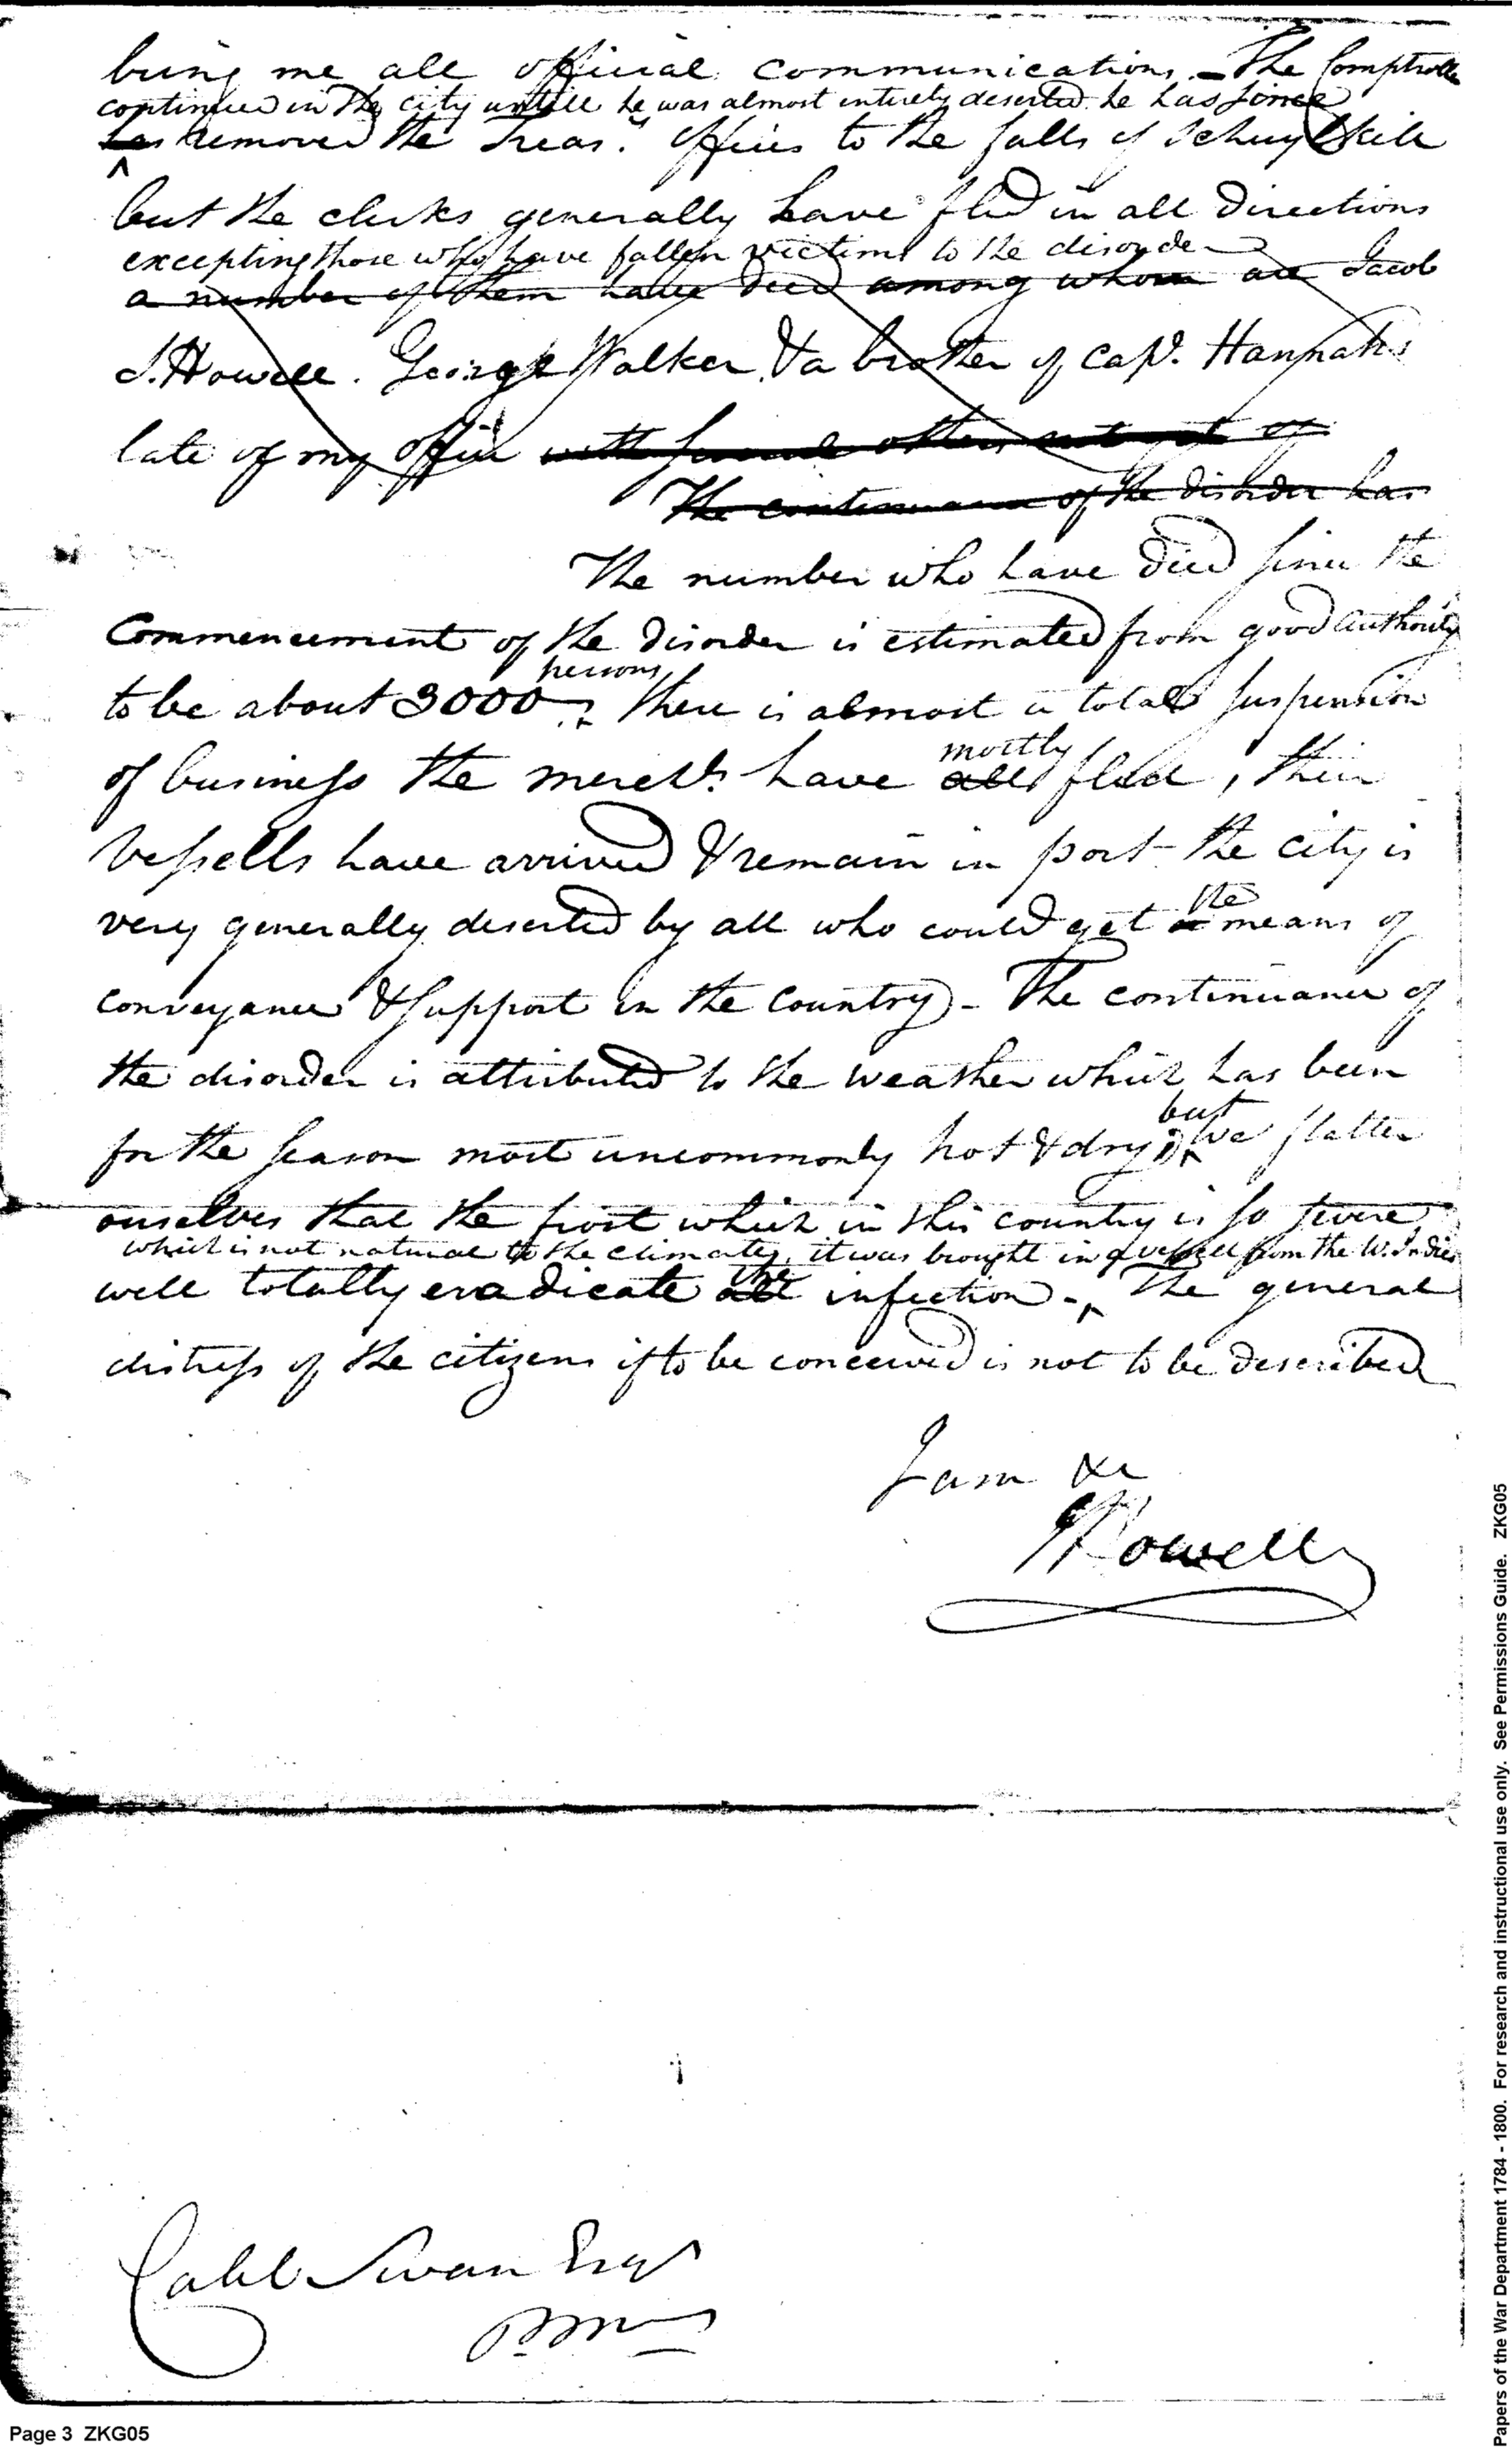 bring me all official communications. - The Comptroller
continued in the city untill he was almost entirely deserted. he has since
has removed the Treas.y offices to the falls of Schuylkill
but the clerks generally have fled in all directions
excepting those who have fallen victims to the disorder
a number of them have died among whom are Jacob
S. Howell. George Walker, & a brother of Cap.t Hannah's
late of my office with several others not yet of
The continuance of the disorder has
The number who have died since the
Commencement of the disorder is estimated from good authority
persons
to be about 3000. There is almost a total suspension
mostly
of business the merch.ts have all fled, their
vessells have arrived & remain in port the city is
the
very generally deserted by all who could get a means of
conveyance & support in the Country - The continuance of
the disorder is attributed to the weather which has been
but
for the season most uncommonly hot & dry; we flatter
ourselves that the frost which in this country is so severe
which is not natural to the climate, it was brought in a vessell from the W. Indies
the
will totally eradicate all infection - The general
distress of the citizens if to be conceived is not to be described
I am &c
JHowell
Caleb Swan Esqr
P.M.
Page 3 ZKG05
Papers of the War Department 1784 - 1800. For research and instructional use only. See Permissions Guide. ZKG05